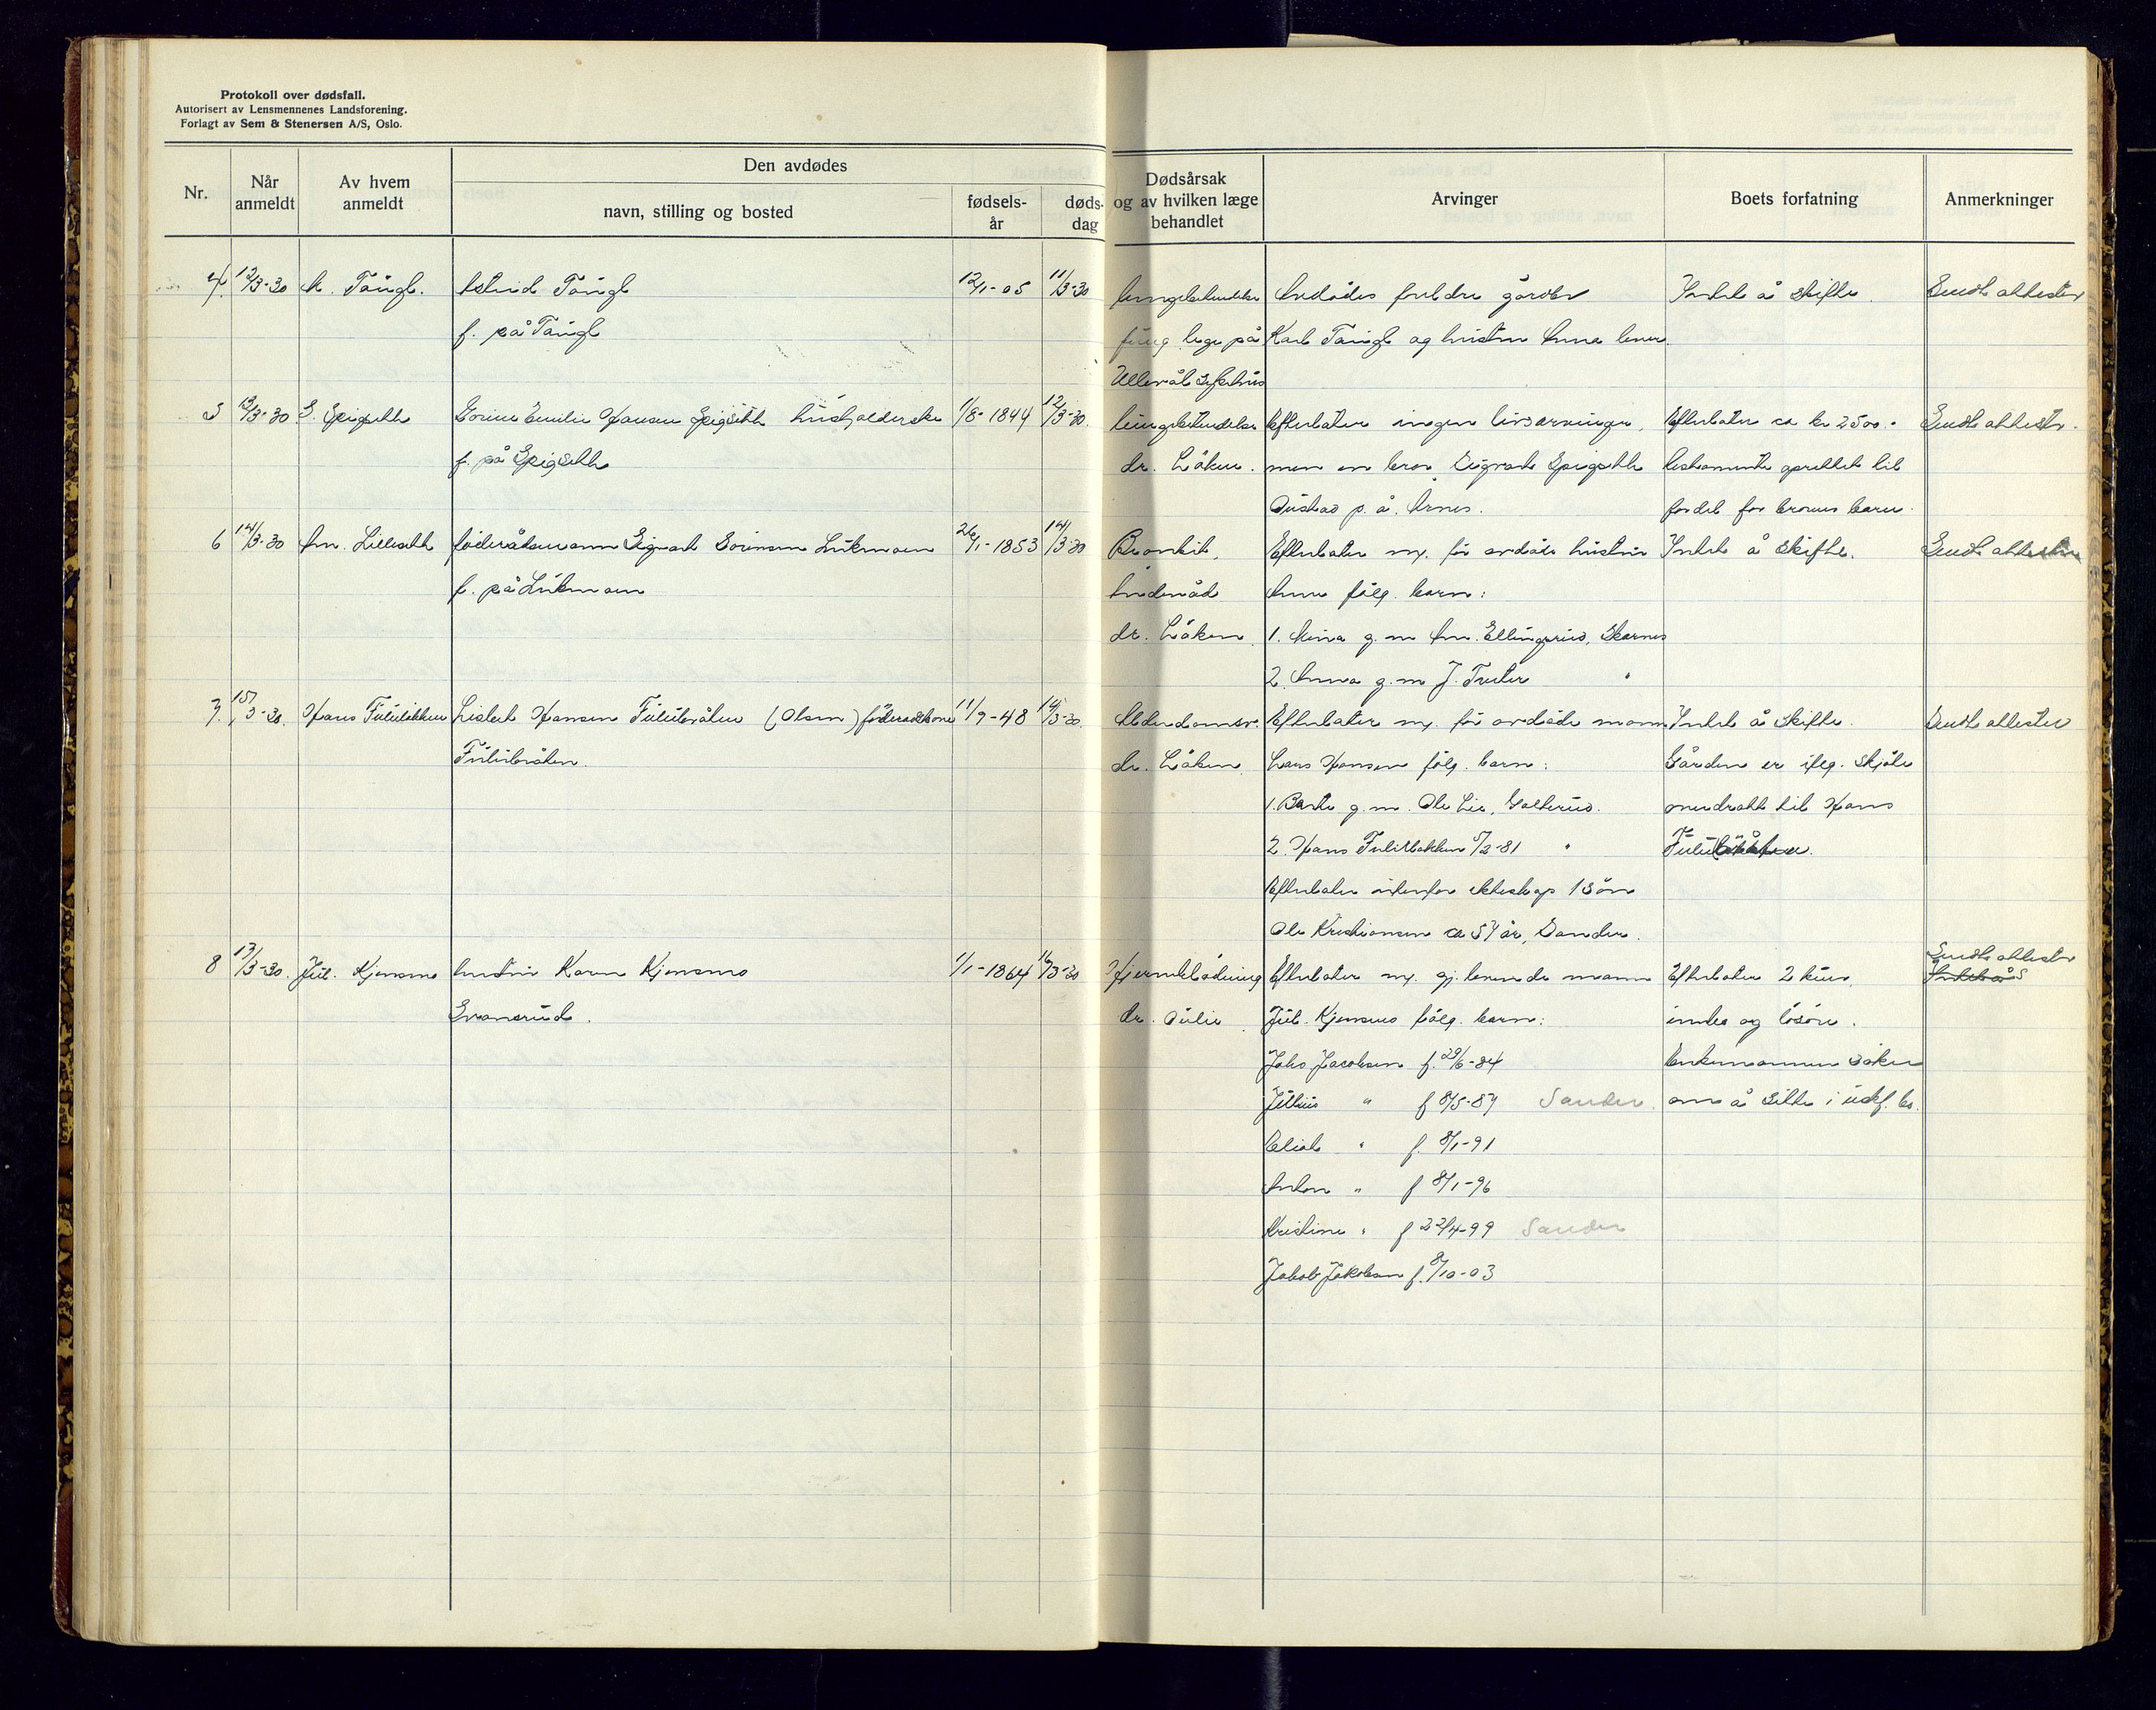 Protokoll over dødsfall.
Autorisert av Lensmennenes Landsforening.
Forlagt av Sem & Stenersen A/S, Oslo.
Nr.
Når anmeldt
Av hvem anmeldt
Den avdødes
navn, stilling og bosted
fødsels-år
døds-dag
Dødsårsak og av hvilken læge behandlet
Arvinger
Boets forfatning
Anmerkninger
4. 12/3-30 K. Taugl. Astrid Taugl 12/1-05 11/3-30
f. på Taugl
lege på
Ullevål sykehus
Avdødes foreldre gårdbr
Karl Taugl og hustru Anna lever.
Intet å skifte.
Sendt attester
5 13/3-30 S. Spigseth Gorine Emilie Hansen Spigseth husholderske 1/8-1844 12/3-30
f. på Spigseth
lungebetendelse
dr. Låken.
Efterlater ingen livsarvinger,
men en bror Sigvart Spigseth
Austad p. å. Årnes.
Efterlater ca kr 2500.-
testamente oprettet til
fordel for brorens barn.
Sendt attester.
6 14/3-30 Am. Lilleseth føderådsmann Sigvart Sørensen Lukmoen 26/1-1853 14/3-30
f. på Lukmoen
Bronkit,
åndenød
dr. Låken.
Efterlater m. før avdøde hustru
Anne følg. barn:
1. Mina g. m Am. Ellingsrud, Skarnes
2. Anna g. m J. Truter "
Intet å skifte.
Sendt attester
7. 15/3-30. Hans Fulubakken Lisbet Hansen Fulubråten (Olsen) føderådskone 11/9-48 14/3-30.
Fulubråten.
Alderdomssv.
dr. Låken.
Efterlater m. før avdøde mann
Lars Hansen følg. barn:
1. Berte g. m. Ole Lie, Galterud.
2. Hans Fulubakken 5/2-81 "
Efterlater utenfor ekteskap 1 søn
Ole Kristiansen ca 57 år, Sander.
Intet å skifte.
Gården er iflg. skjøte
overdratt til Hans
Sendt attester
8 17/3-30. Jul. Kjensmo hustru Karen Kjensmo 1/1-1864 16/3-30
Svansrud.
Hjerneblødning
dr. Julie
Efterlater m. gj. levende mann
Jul. Kjensmo følg. barn:
Johs Jacobsen f. 29/6-84
Julius " f 8/5-87 Sander.
" f. 8/1-91
Anton " f 8/1-96
Kristine " f 22/4-99 Sander
Jakob Jakobsen f. 8/10-03
Efterlater 2 kuer,
innbo og løsøre.
Enkemannen søker
om å sitte i uskf. bo.
Sendt attester